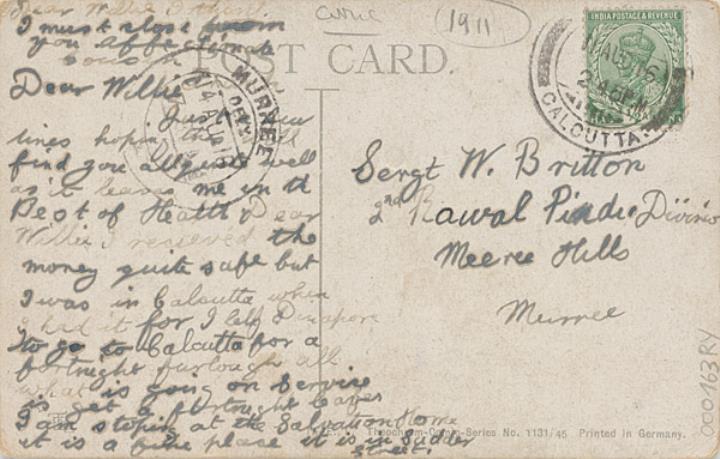 Dear Willie
I must close
you affectionate
cousin
POST CARD.
1911
INDIA POSTAGE & REVENUE
AUG
2.45 P.M.
CALCUTTA
MURREE
DELY
Dear Willie
Just a few
lines hoping this will
find you all quite well
as it leaves me in th
Best of Health Dear
Willie I recieved the
money quite safe but
I was in Calcutta when
I had it for I left Dinapore
to go to Calcutta for a
fortnight furlough all
what is going on Service
is get a fortnight leaves
I am stoping at the Salvation Home
it is a fine place it is in Sudder
street.
Sergt W. Britton
2nd Rawal Pindie Divisio
Meeree Hills
Murree
000163RY
Theochrom-Comm-Series No. 1131/45 Printed in Germany.